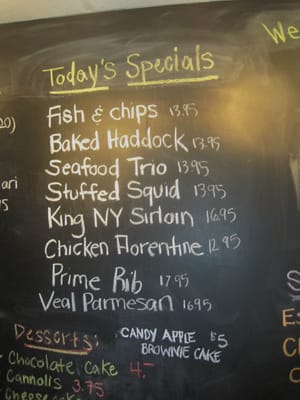 We
Today's Specials
Fish & chips 13.95
Baked Haddock 13.95
Seafood Trio 13.95
Stuffed Squid 13.95
King NY Sirloin 16.95
Chicken Florentine 12.95
Prime Rib 17.95
Veal Parmesan 16.95
Desserts:
CANDY APPLE $5
BROWNIE CAKE
Chocolate Cake 4.-
Cannolis 3.75
Cheeseca